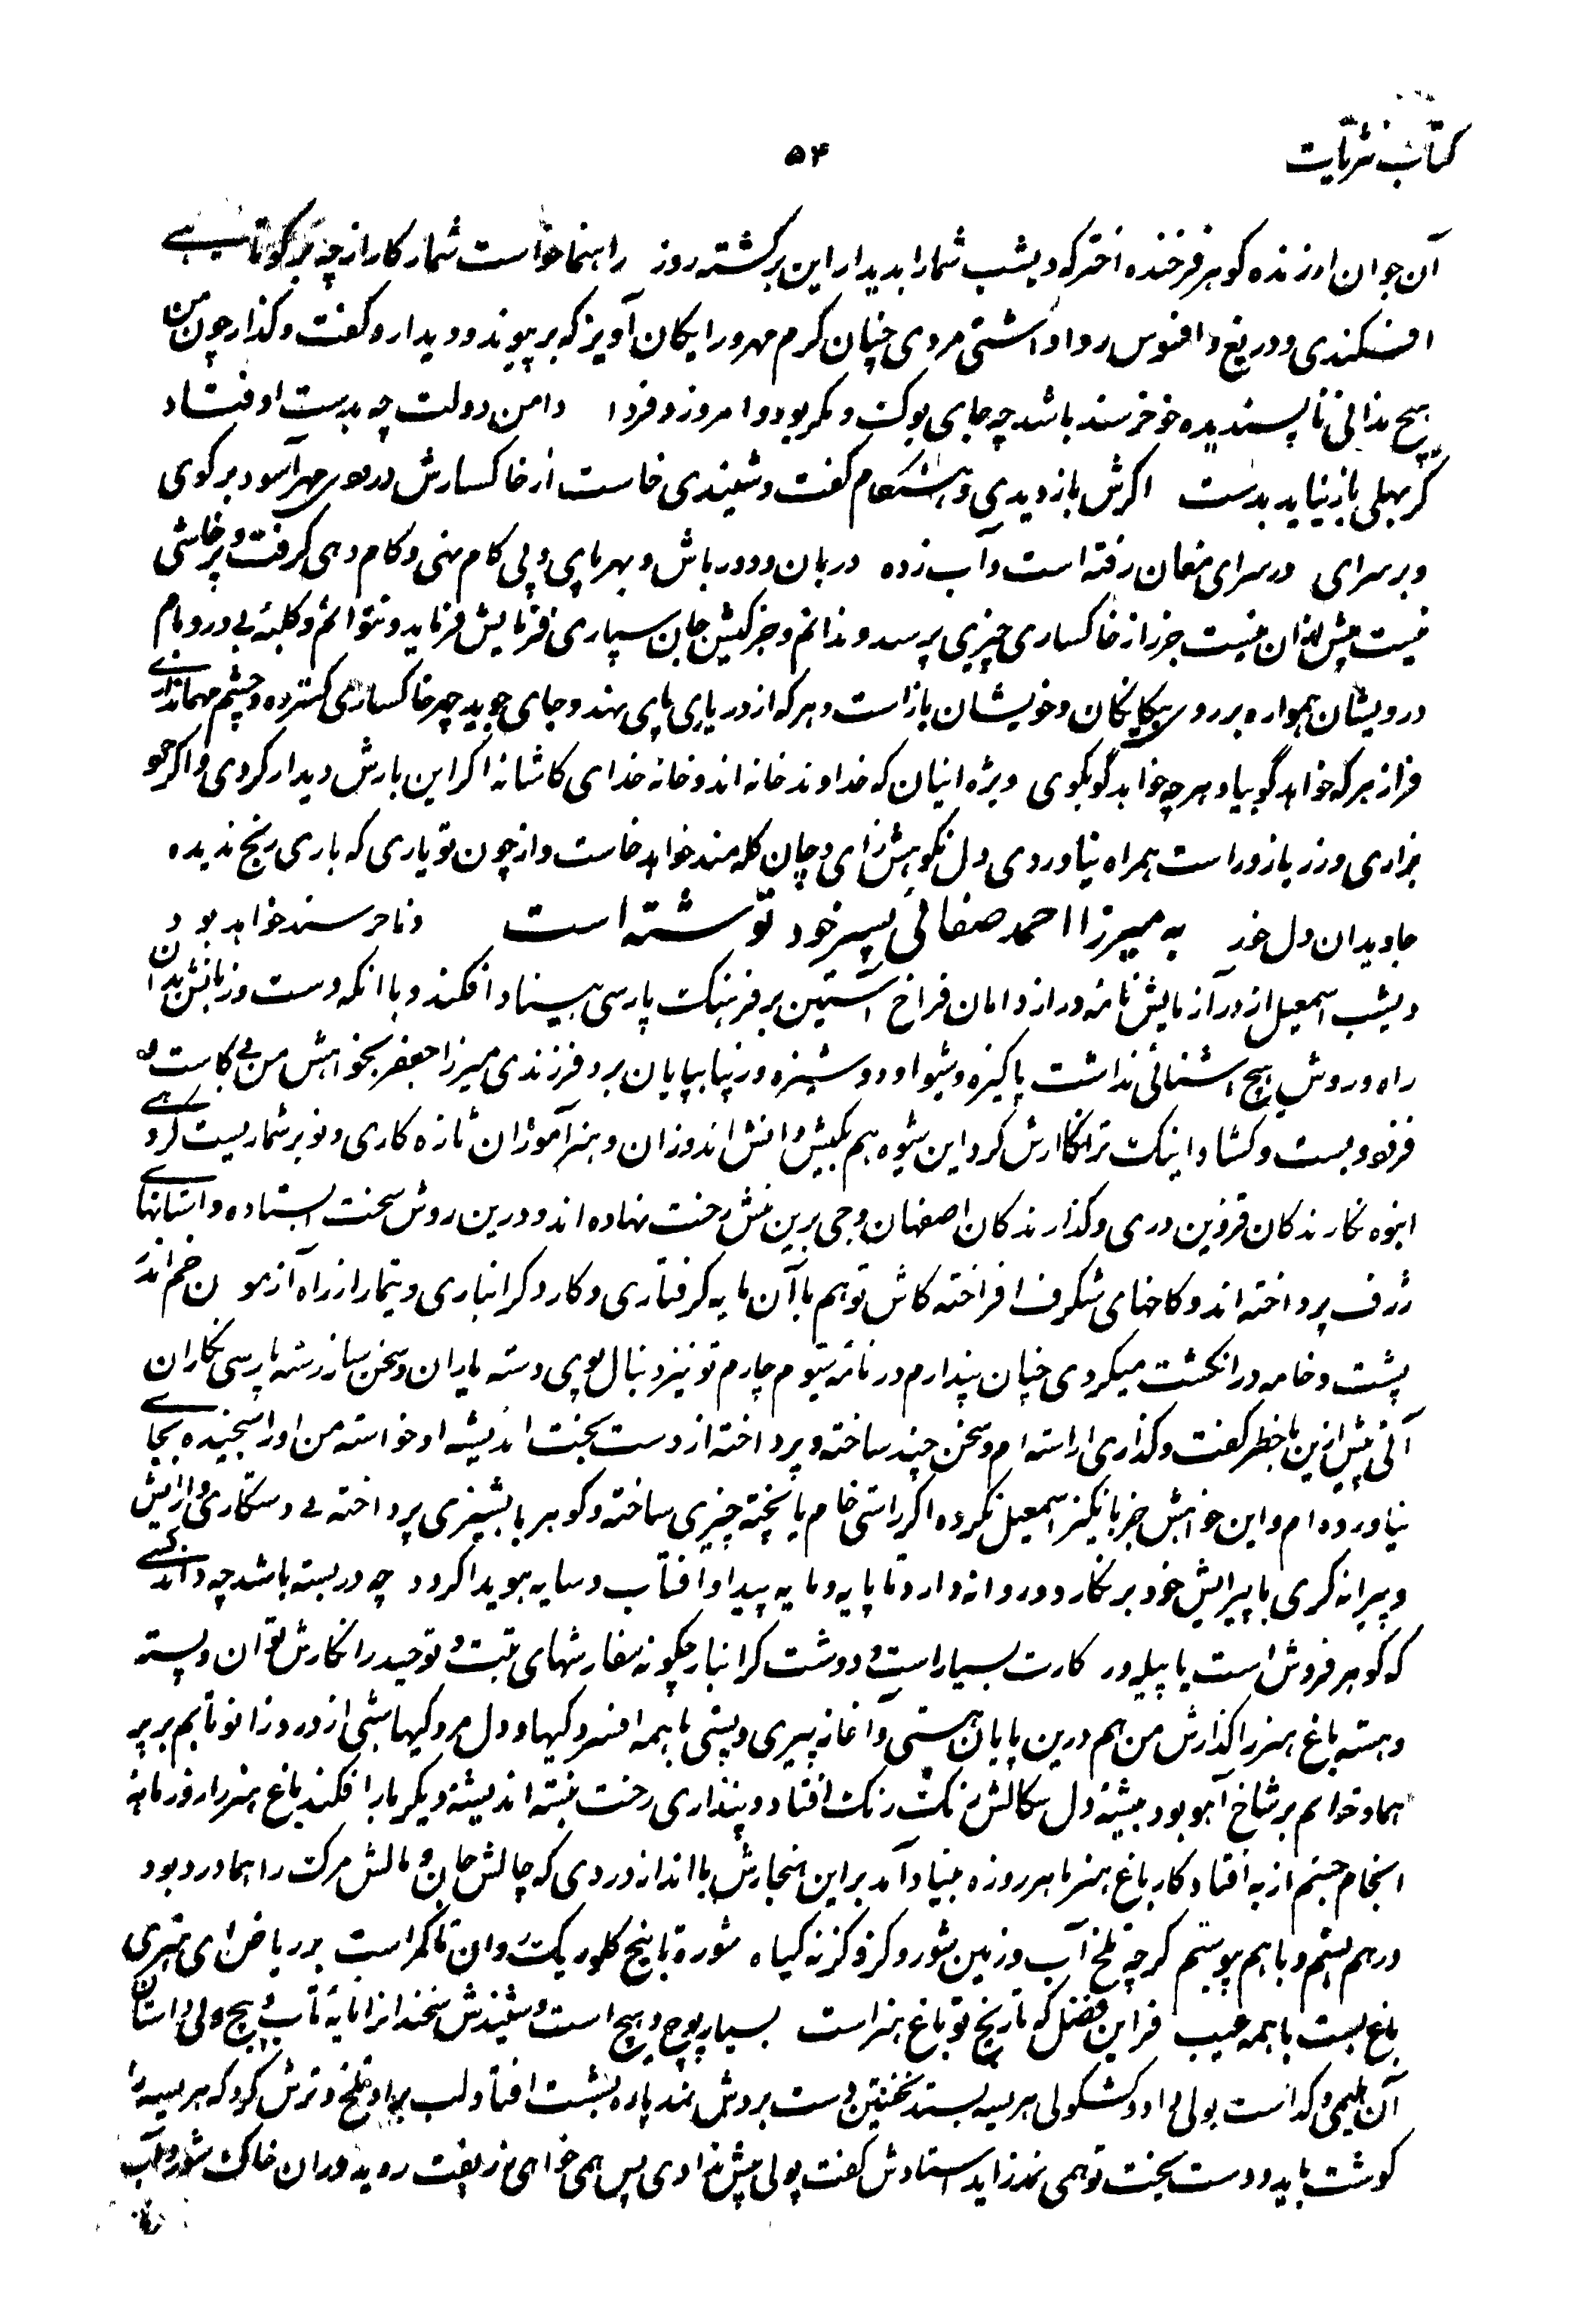 کتاب نثریات
۵۴
آن جوان ارزنده کوهر فرخنده اختر که دیشب شما را بدیدار این برکشته روز راهنما خواست شمار کار از چه بر کوتاهی
افکندی و دریغ و افسوس روا داشتی مردی چنان کرم مهر و رایکان آویز که بر پیوند و دیدار و کفت و کذار چون من
هیچ ندانی ناپسندیده خو خرسند باشد چه جای بوک و مکر بود و امروز و فردا دامن دولت چه بدست اوفتاد
گر بهلی باز نیاید بدست اکرش بازدیدی و هنکام کفت و شنیدی خاست از خاکسارش درود مهرآسود برکوی
و برسرای در سرای مغان رفته است و آب زده دربان و دورباش و بهرپای و پی کام منی و کام دهی کرفت و پرخاشی
نیست پیش ازان نیست جز از خاکساری چیزی پرسد و ندانم و جز کیش جان سپاری فرمایش فرماید و نتوانم و کلبه بی در و بام
درویشان همواره بر روی بیکانکان و خویشان باز است و هر که از در یاری پای نهد و جای جوید چهر خاکساری کسترده و چشم مهمانداری
فراز هر که خواهد گو بیا و هر چه خواهد گو بکوی ویژه اینان که خداوند خانه اند و خانه خدای کاشانه اکر این بارش دیدار کردی و اکر خو
بزاری ور زر بازور است همراه نیاوردی دل نکوهش زای و جان کله مند خواهد خاست و از چون تو یاری که باری رنج ندیده
جاویدان دل خور به میرزا احمد صفائی پسر خود نوشته است و ناخرسند خواهد بود
دیشب اسمعیل از در آزمایش نامه دراز دامان فراخ آستین بر فرهنک پارسی بنیاد افکند و با انکه دست و زبانش بدان
راه و روش هیچ آشنائی نداشت پاکیزه و شیوا و دوشیزه و زیبا بپایان برد فرزندی میرزا جعفر بخواهش من بی کاست و
فزود بست و کشاد اینک ترا نکارش کرد این شیوه هم بکیش دانش اندوزان و هنرآموزان تازه کاری و نو بر شماریست کروهی
انبوه نکارندکان قزوین و ری و کذارندکان اصفهان و جی برین منش رخت نهاده اند و درین روش سخت ایستاده داستانهای
ژرف پرداخته اند و کاخهای شکرف افراخته کاش تو هم با آن مایه کرفتاری و کار و کرانباری و تیمار از راه آزمون خم اندر
پشت و خامه در انکشت میکردی چنان پندارم در نامه سیوم چارم تو نیز دنبال پوی دسته یاران و سخن ساز رسته پارسی نکاران
آئی پیش ازین بخطر کفت و کذاری آراسته ام و سخن چند ساخته و پرداخته از دست بخت اندیشه او خواسته من او را سنجیده بجای
نیاورده ام و این خواهش جز بانکیز اسمعیل نکرده اکر راستی خام یا پخته چیزی ساخته و کوهر یا پشیزی پرداخته بی دستکاری و آرایش
و پیرانه کری با پیرایش خود برنکار و در روانه دار و تا پایه و مایه پیدا و آفتاب و سایه هویدا کردد چه در بسته باشد چه داند کسی
که کوهر فروش است یا پیله ور کارت بسیار است و دوشت کرانبار چکونه سفارشهای تبت و توحید را نکارش توان و پسته
و هسته باغ هنر را کذارش من هم درین پایان هستی و آغاز پیری و پستی با همه افسردکیها و دل مردکیها شبی از در و زانو تا بم بر پر
هما و خوابم بر شاخ آهو بود بیشه دل سکالش رنک رنک افتاد و پنداری رخت نبسته اندیشه دیکر بار افکند باغ هنر را روز مانه
انجام جستم از به افتاد کار باغ هنر ما هر روزه بنیاد آمد بر این هنجارش با اندازه دردی که چالش جان و مالش مرک را همادرد بود
در هم بستم و با هم پیوستم کرچه تلخ آب و زمین شور و کز و کزنه کیاه شوره تا پنج کلو ریک روان تا کمر است بر ریاض ای پسری
باغ بست با همه عیب فر این فضل که تاریخ تو باغ هنر است بسیار پوچ و هیچ است و شنیدنش سخندانرا مایه تاب و پیچ ولی داستان
آن بلیمی و کداست پولی داد و کشکولی هریسه بستد نخستین دست بردش نمد پاره بشست افتاد و لب بر او تلخ و ترش کرد که هریسه را
کوشت باید و دست بخت تو همی نمد زاید استادش کفت پولی پیش ندادی پس همی خواهی زربفت روید در ان خاک شور و آب